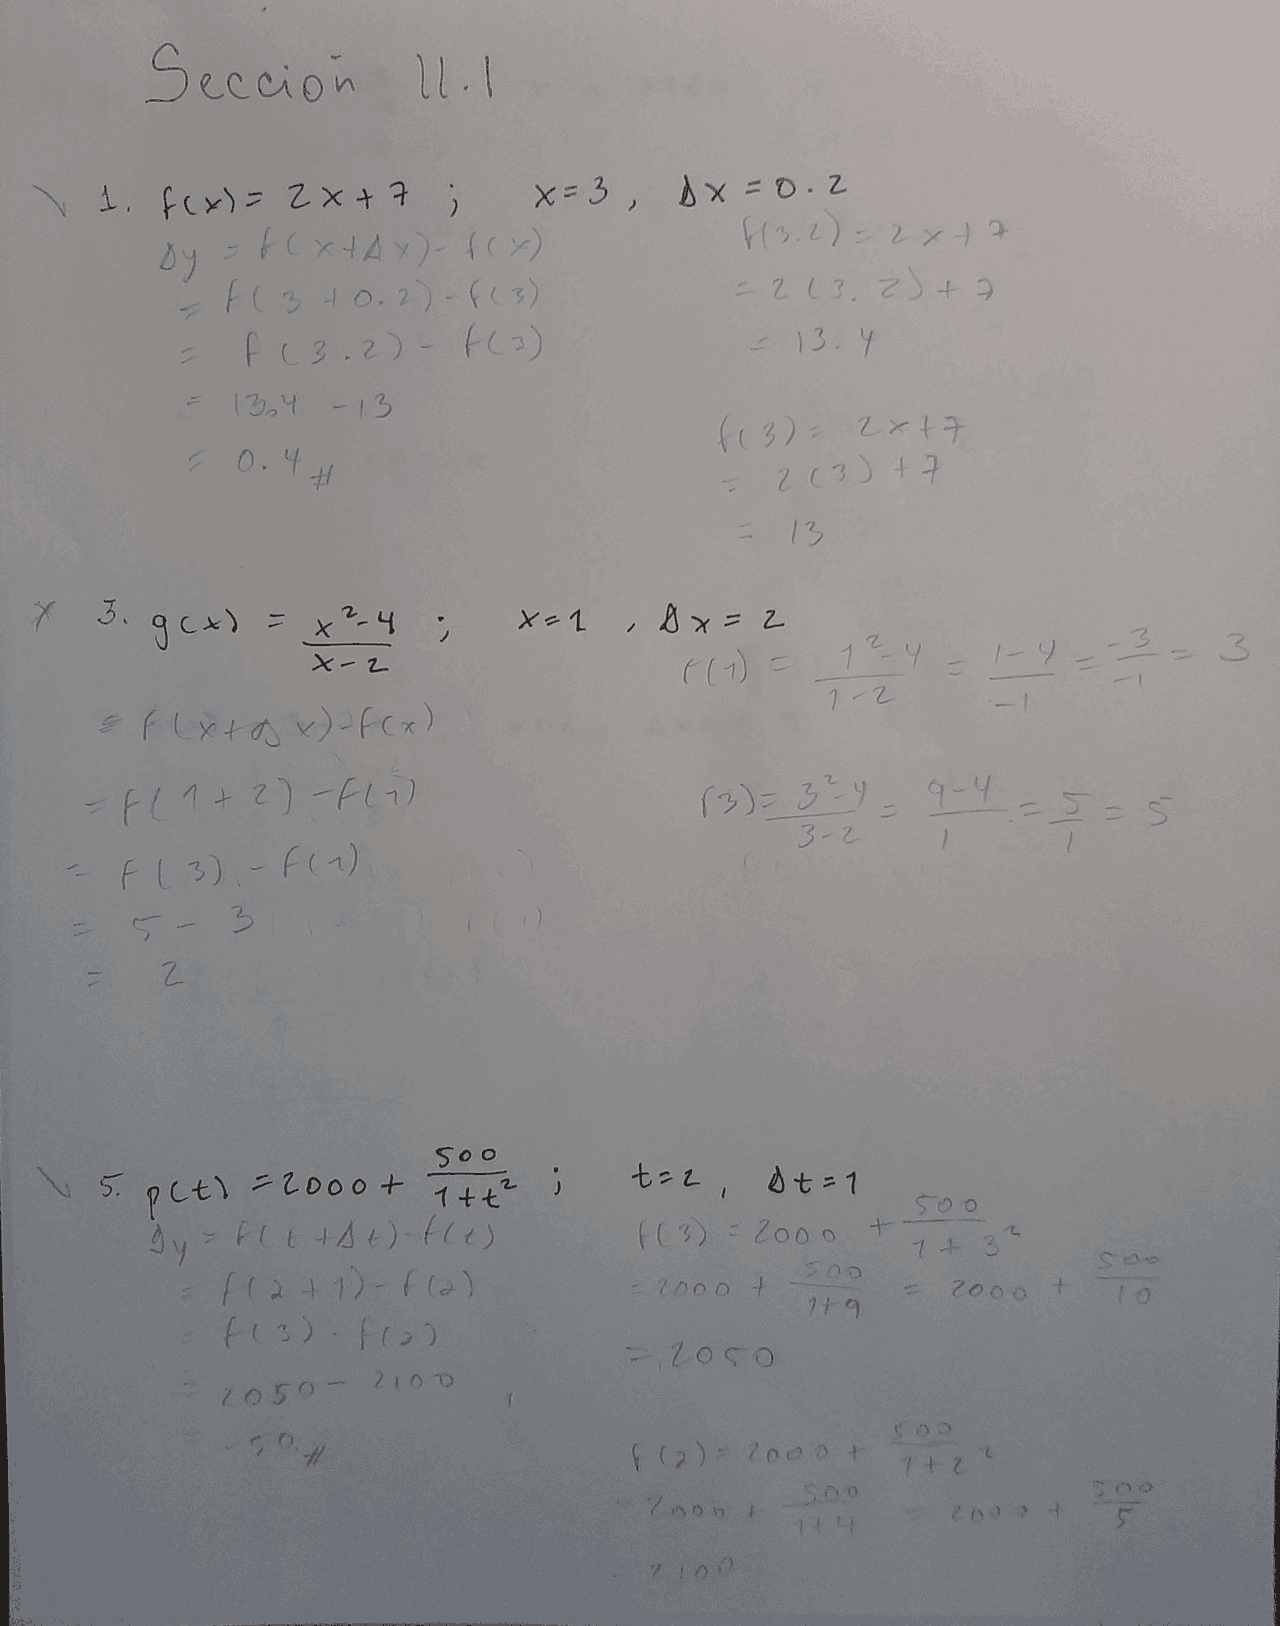 Sección 11.1
1. f(x) = 2x+7 ; x=3, Δx=0.2
Δy = f(x+Δx)-f(x)
= f(3+0.2)-f(3)
= f(3.2)- f(3)
= 13.4 -13
= 0.4 #
f(3.2)= 2x+7
= 2(3.2)+7
= 13.4
f(3)= 2x+7
= 2(3)+7
= 13
x 3. g(x) = x²-4 / x-2 ; x=1, Δx=2
= f(x+Δx)-f(x)
= f(1+2)-f(1)
= f(3)-f(1)
= 5 - 3
= 2
f(1) = 1²-4 / 1-2 = 1-4 / -1 = -3 / -1 = 3
f(3)= 3²-4 / 3-2 = 9-4 / 1 = 5 / 1 = 5
5. p(t) =2000+ 500 / 1+t² ; t=2, Δt=1
Δy = f(t+Δt)-f(t)
= f(2+1)-f(2)
= f(3)-f(2)
= 2050- 2100
= -50 #
f(3) = 2000 + 500 / 1+3²
= 2000 + 500 / 1+9 = 2000 + 500 / 10
= 2050
f(2)= 2000 + 500 / 1+2²
2000 + 500 / 1+4 = 2000 + 500 / 5
2100